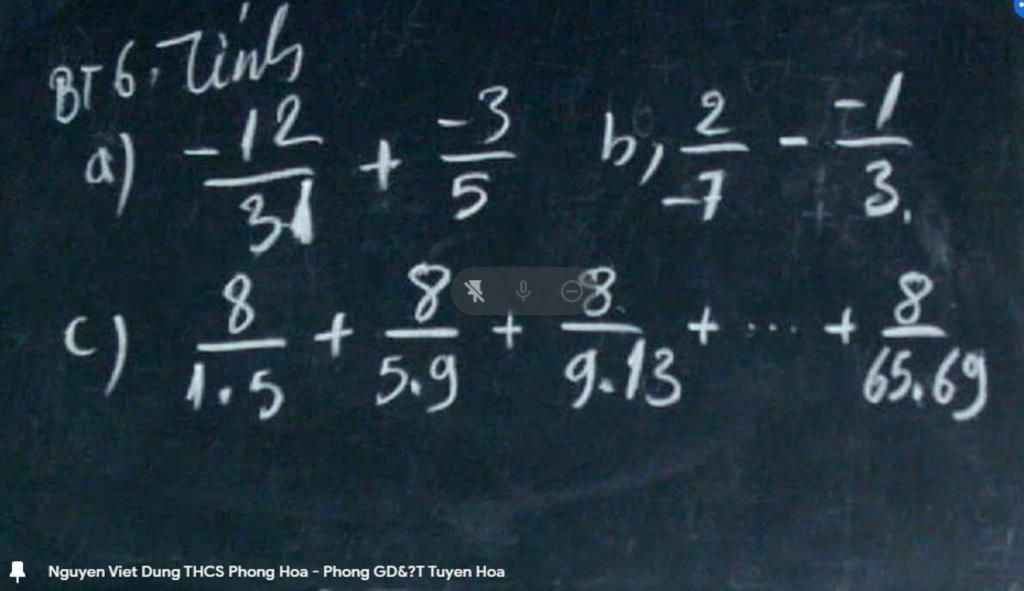 BT 6. Tính
a) -12/31 + -3/5 b, 2/-7 - -1/3.
c) 8/1.5 + 8/5.9 + 8/9.13 + ... + 8/65.69
Nguyen Viet Dung THCS Phong Hoa - Phong GD&?T Tuyen Hoa